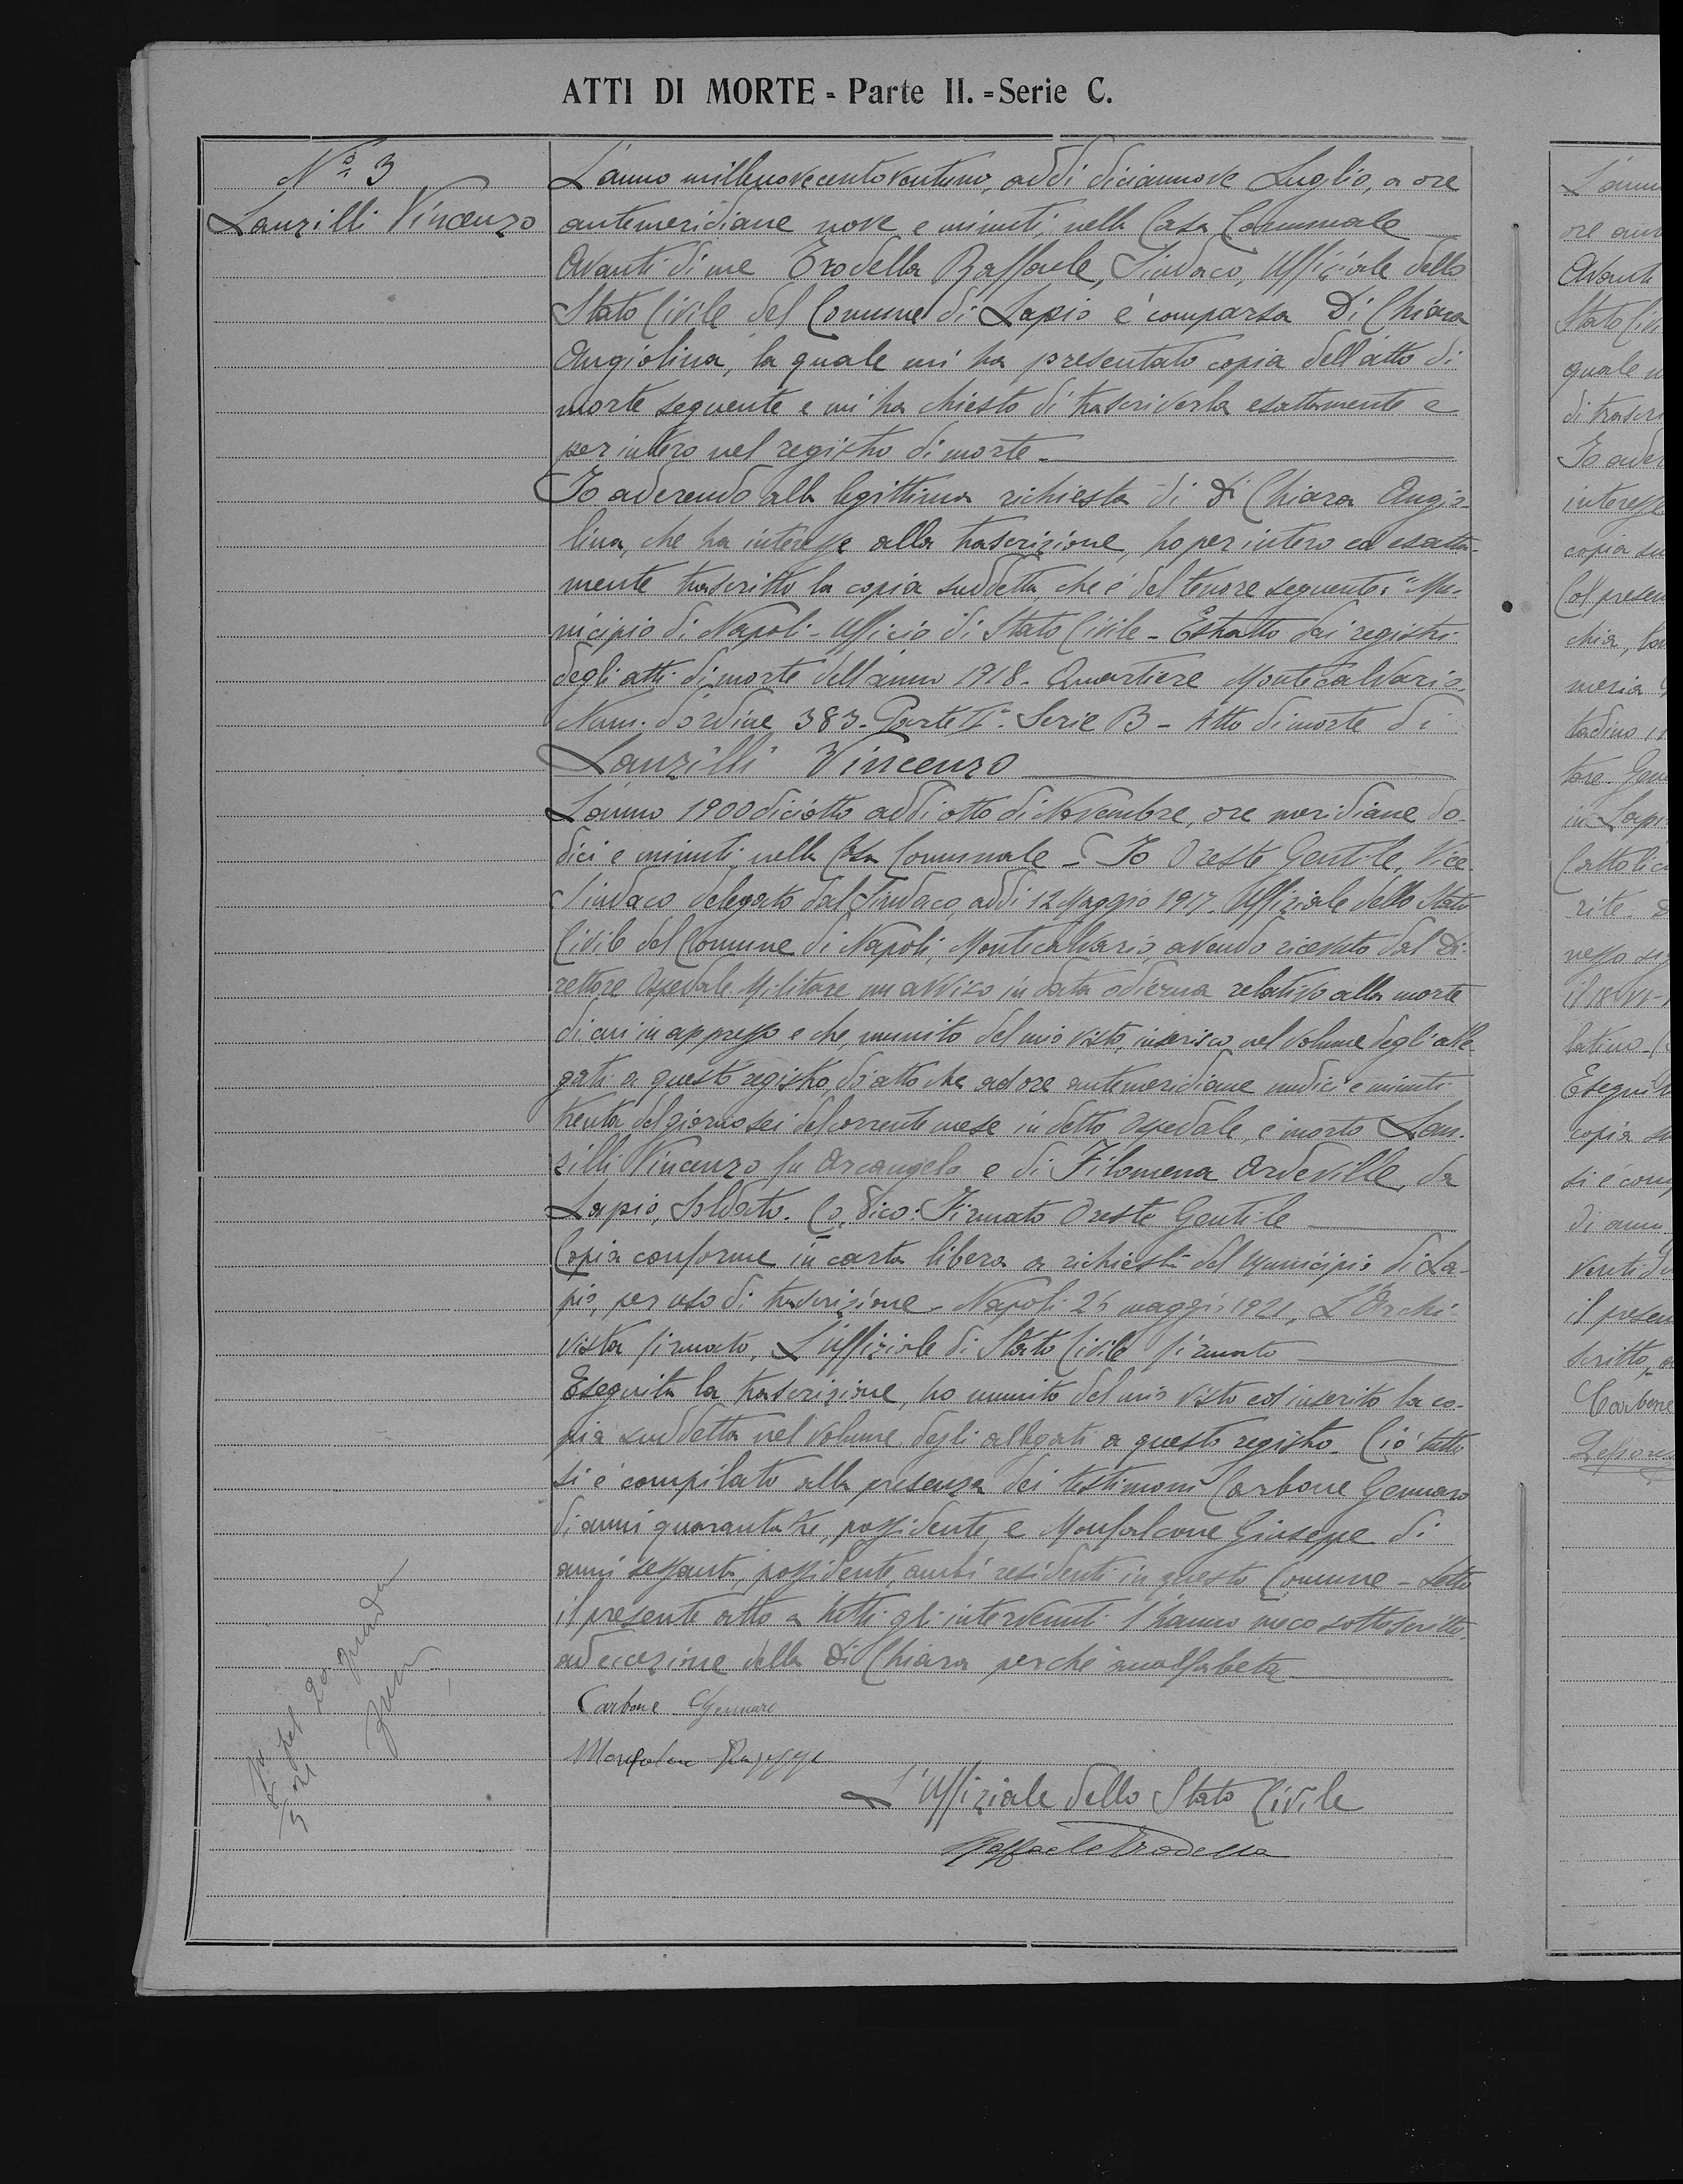 ATTI DI MORTE - Parte II. = Serie C.
Nº 3
Lanzilli Vincenzo
L'anno millenovecentoventuno, addì diciannove Luglio, a ore
antemeridiane nove e minuti, nella Casa Comunale
Avanti di me Trodella Raffaele, Sindaco, Uffiziale dello
Stato Civile del Comune di Lapio è comparsa Di Chiara
Angiolina, la quale mi ha presentato copia dell'atto di
morte seguente e mi ha chiesto di trascriverla esattamente e
per intero nel registro di morte.
Io aderendo alla legittima richiesta di Di Chiara Angio-
lina, che ha interesse alla trascrizione, ho per intero ed esatta-
mente trascritto la copia suddetta, che è del tenore seguente: "Mu-
nicipio di Napoli - Ufficio di Stato Civile - Estratto dai registri
degli atti di morte dell'anno 1918 - Quartiere Montecalvario.
Num. d'ordine 383 - Parte IIª - Serie B - Atto di morte di
Lanzilli Vincenzo
L'anno 1900diciotto addì otto di Novembre, ore meridiane do-
dici e minuti, nella Casa Comunale - Io Oreste Gentile, Vice
Sindaco delegato dal Sindaco, addì 12 Maggio 1917, Uffiziale dello Stato
Civile del Comune di Napoli, Montecalvario, avendo ricevuto dal Di-
rettore Ospedale Militare un avviso in data odierna relativo alla morte
di cui in appresso e che, munito del mio visto, inserisco nel volume degli alle-
gati a questo registro, do atto che ad ore antemeridiane undici e minuti
trenta del giorno sei del corrente mese in detto Ospedale, è morto Lan-
zilli Vincenzo fu Arcangelo e di Filomena Ardeville, da
Lapio, Soldato. Firmato Oreste Gentile
Copia conforme in carta libera a richiesta del Municipio di La-
pio, per uso di trascrizione - Napoli 26 maggio 1921, L'Archi-
vista firmato, L'Uffiziale di Stato Civile firmato
Eseguita la trascrizione, ho munito del mio visto ed inserito la co-
pia suddetta nel volume degli allegati a questo registro. Ciò tutto
si è compilato alla presenza dei testimoni Carbone Gennaro
di anni quarantatre, possidente, e Monfalcone Giuseppe di
anni sessanta, possidente, ambi residenti in questo Comune - Letto
il presente atto a tutti gli intervenuti l'hanno meco sottoscritto,
ad eccezione della Di Chiara perché analfabeta
Carbone Gennaro
Monfalcone Giuseppe
L'Uffiziale dello Stato Civile
Raffaele Trodella
L'ann
Avanti
Stato Civ
quale m
di trascri
Io ader
interesse
copia su
Col presen
chia,
meria
tadino
tore. Gen
in Lapi
Cattolic
rite.
nesso
latino
Esegui
copia su
si è com
di ann
venti
il presen
scritto,
Carbone